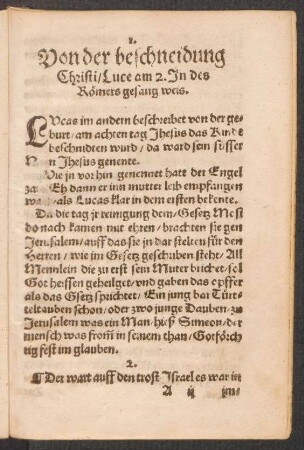 1.
Von der beschneidung
Christi/ Luce am 2. In des
Römers gesang weis.
LVcas im andern beschreibet von der ge-
burt/ am achten tag Jhesus das Kindt
beschnidten wurd/ da ward sein süsser
Jhesus genente.
Wie jn vor hin genennet hatt der Engel
zart Eh dann er inn mutter leib empfangen
als Lucas klar in dem ersten bekente.
Da die tag jr reinigung dem/ Gesetz Mosi
do nach kamen mit ehren/ brachten sie gen
Jerusalem/ auff das sie in dar stelten für den
Herren/ wie im Gesetz geschriben steht/ All
Mennlein die zu erst sein Muter brichet/ sol
Got heissen geheilget/ vnd gaben das opffer
als das Gsetz sprichtet/ Ein jung bar Türt-
teltauben schon/ oder zwo junge Dauben/ zu
Jerusalem was ein Man/ hieß Simeon/ der
mensch was from in seinem than/ Gotförch
tig fest im glauben.
2.
¶ Der wart auff den trost Israel es war in
A ij im/